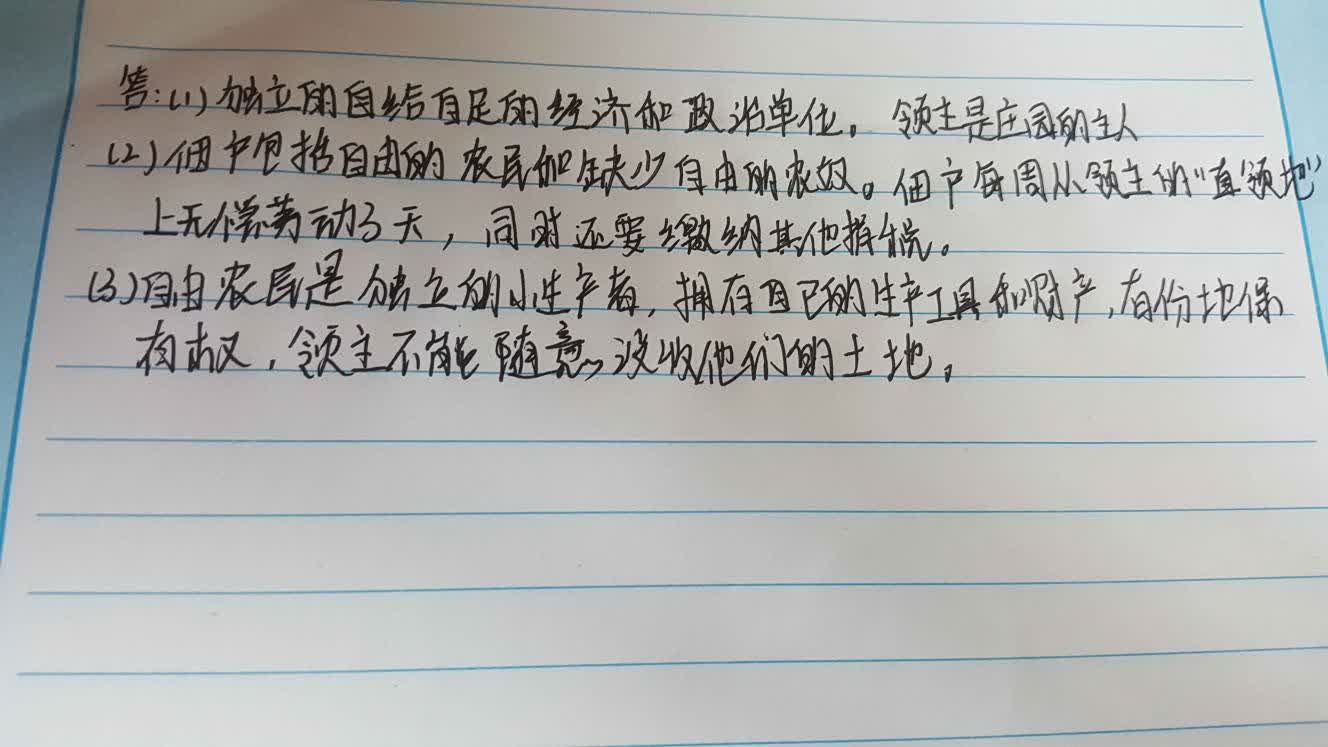 答:(1)独立的自给自足的经济和政治单位。领主是庄园的主人
(2)佃户包括自由的农民和缺少自由的农奴。佃户每周从领主的“直领地”
上无偿劳动3天，同时还要缴纳其他捐税。
(3)自由农民是独立的小生产者，拥有自己的生产工具和财产，有份地保
有权，领主不能随意没收他们的土地。